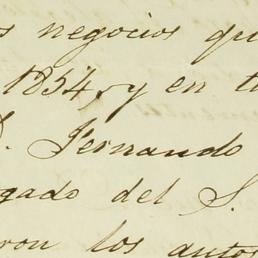 s negocios que
1854, y en t
D. Fernando
gado del S.
ron los autos